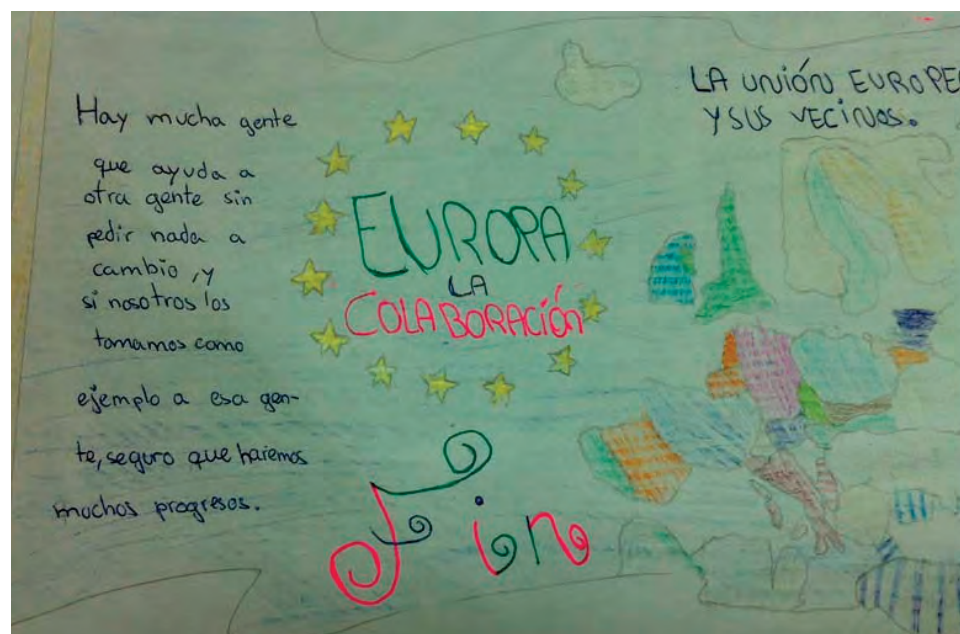 Hay mucha gente
que ayuda a
otra gente sin
pedir nada a
cambio, y
si nosotros los
tomamos como
ejemplo a esa gen-
te, seguro que haremos
muchos progresos.
EUROPA
LA
COLABORACIÓN
Fin
LA UNIÓN EUROPE
Y SUS VECINOS.